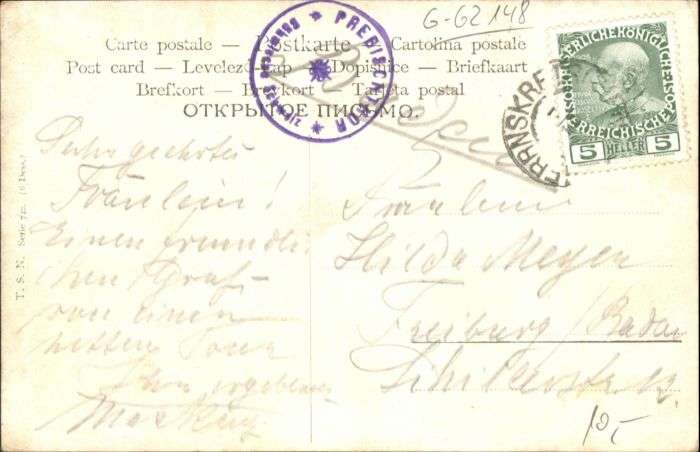 G-GZ 148
Carte postale — Postkarte — Cartolina postale
Post card — Levelező-Lap — Dopisnice — Briefkaart
Brefkort — Brevkort — Tarjeta postal
ОТКРЫТОЕ ПИСЬМО.
PREBISCHTHOR
K.K. OESTERREICHISCHE
5 HELLER 5
HERRNSKRE
T. S. N. Serie 722. (6 Dess.)
Sehr geehrtes
Fräulein!
Einen freundli-
chen Gruß
von einer
netten Tour
Ihr ergebener
Fräulein
Hilda Meyer
Freiburg / Baden
Schillerstr. 12.
10,-